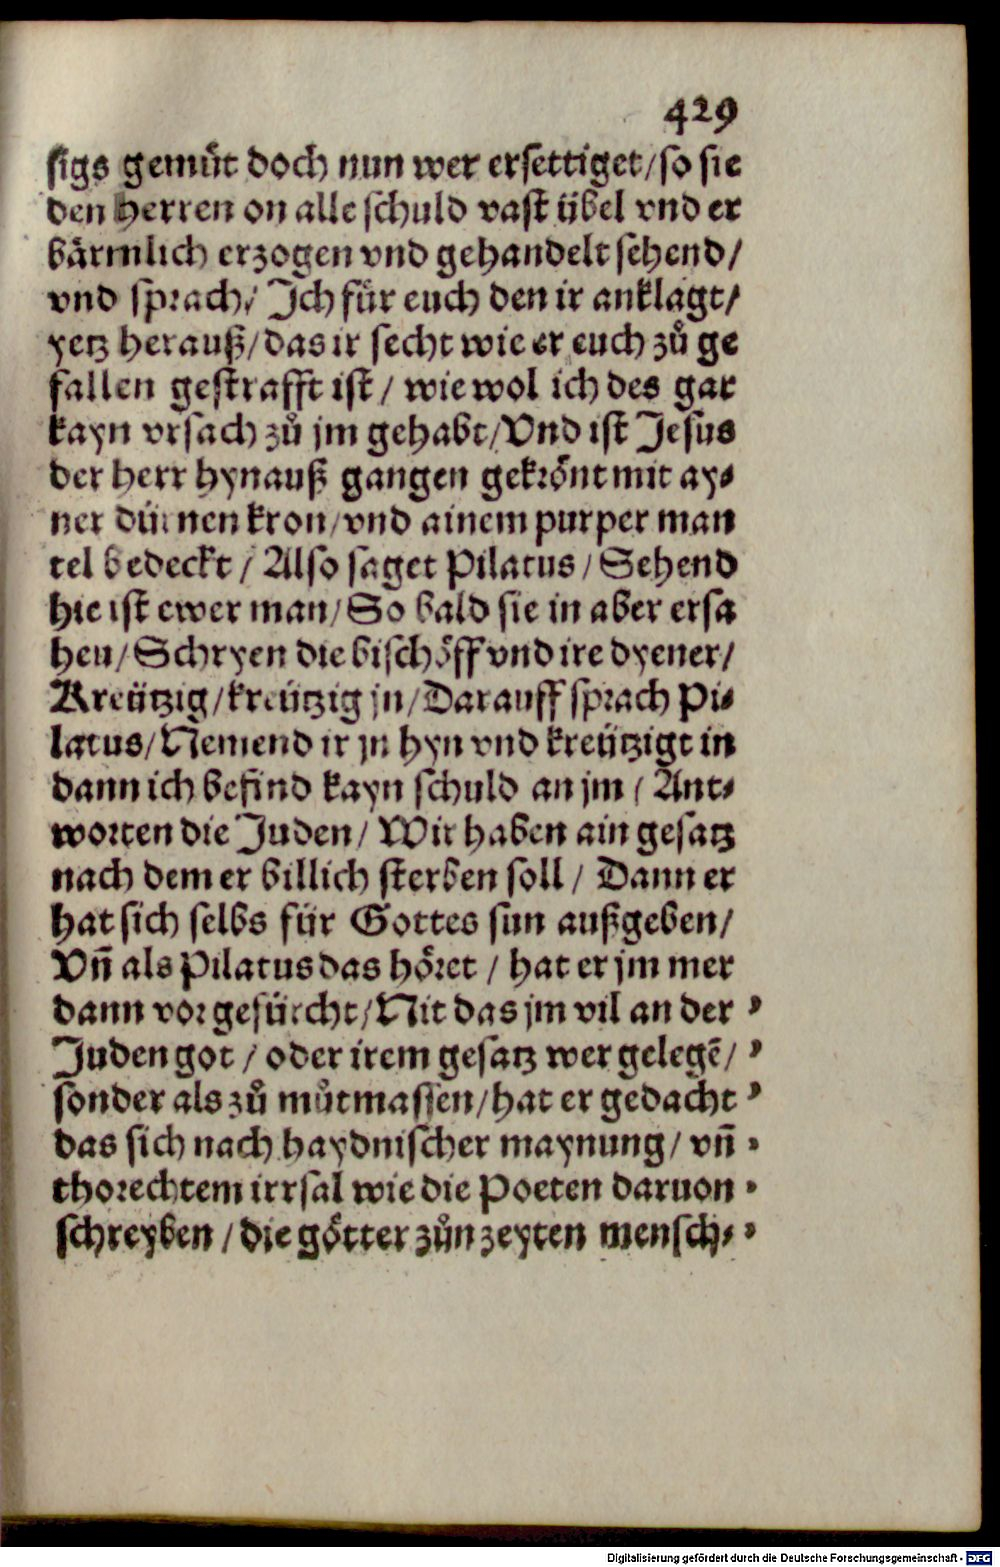 429
sigs gemuͤt doch nun wer ersettiget/so sie
den herren on alle schuld vast übel vnd er
bärmlich erzogen vnd gehandelt sehend/
vnd sprach/ Ich für euch den ir anklagt/
yetz herauß/das ir secht wie er euch zů ge
fallen gestrafft ist / wie wol ich des gar
kayn vrsach zů jm gehabt/Vnd ist Jesus
der herr hynauß gangen gekrönt mit ay⸗
ner dürnen kron/vnd ainem purper man
tel bedeckt / Also saget Pilatus / Sehend
hie ist ewer man/So bald sie in aber ersa
hen/Schryen die bischöff vnd ire dyener/
Kreützig/kreützig jn/Darauff sprach Pi⸗
latus/Nemend ir jn hyn vnd kreützigt in
dann ich befind kayn schuld an jm / Ant⸗
worten die Juden/ Wir haben ain gesatz
nach dem er billich sterben soll / Dann er
hat sich selbs für Gottes sun außgeben/
Vn̄ als Pilatus das höret / hat er jm mer
dann vor gefürcht/Nit das jm vil an der ’
Juden got / oder irem gesatz wer gelegē/ ’
sonder als zů můtmassen/hat er gedacht ’
das sich nach haydnischer maynung/ vn̄ ’
thorechtem irrsal wie die Poeten daruon ’
schreyben / die götter zůn zeyten mensch⸗ ’
Digitalisierung gefördert durch die Deutsche Forschungsgemeinschaft - DFG